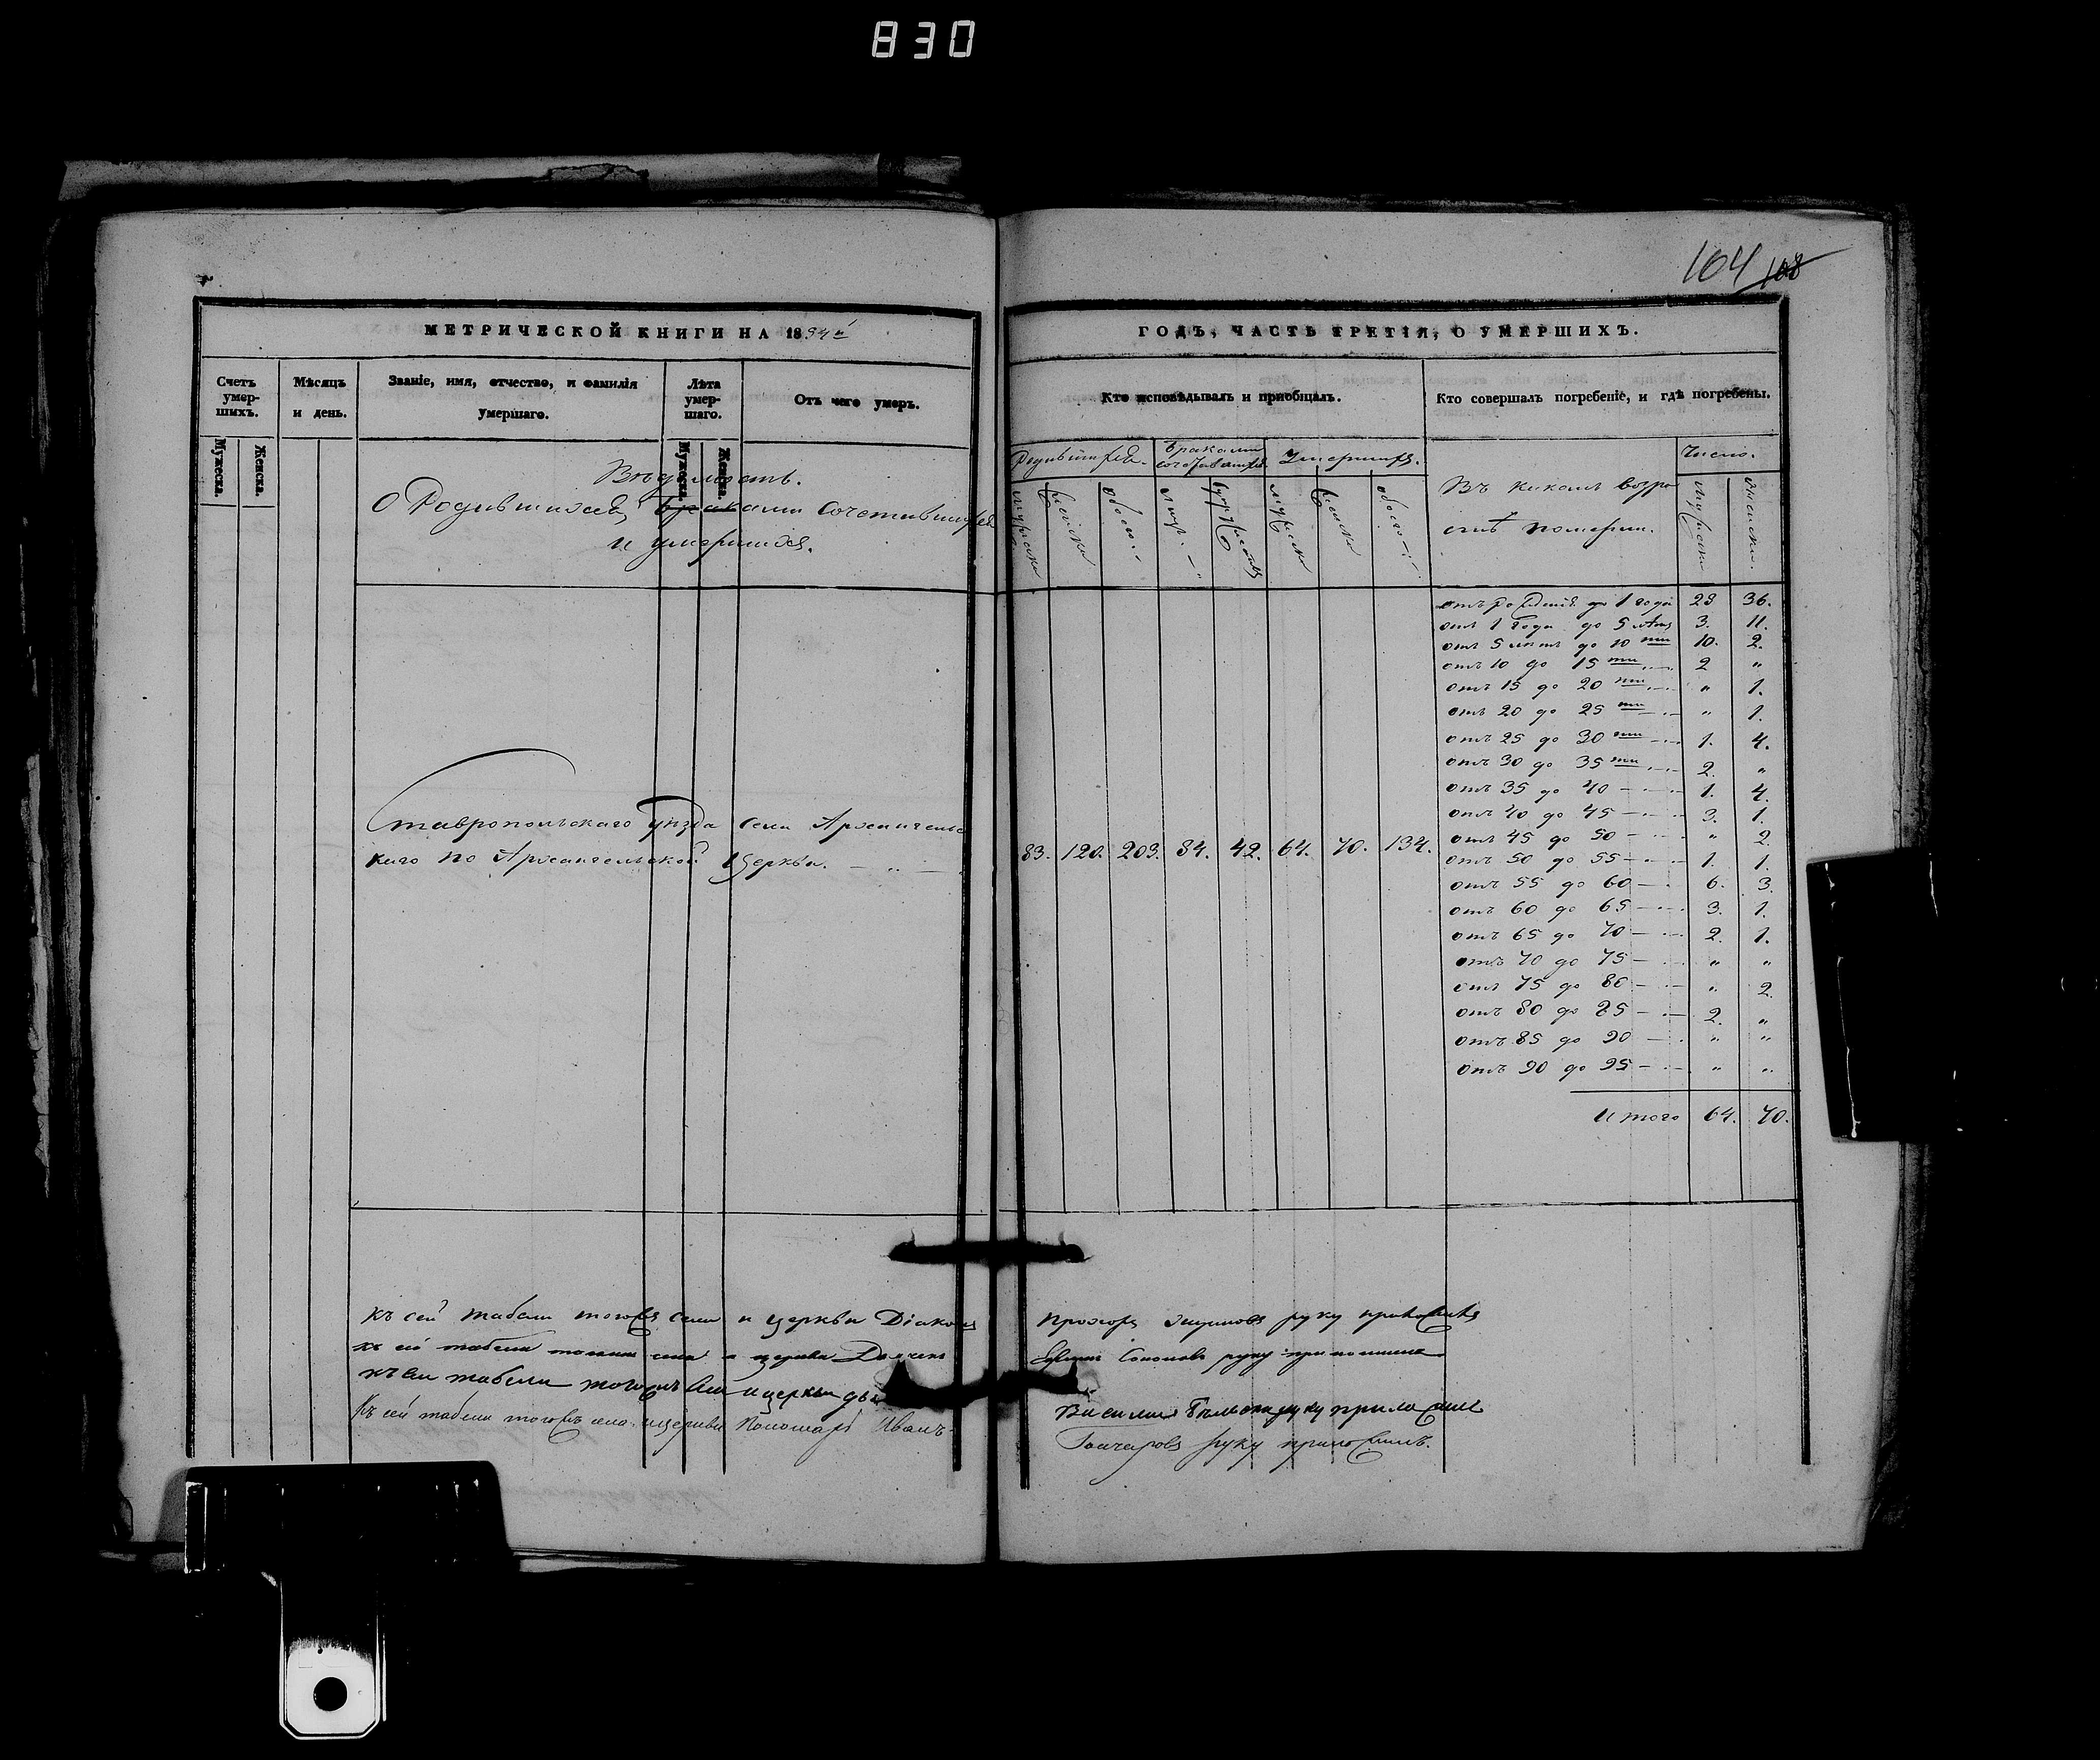 830
104 108
МЕТРИЧЕСКОЙ КНИГИ НА 1834й
ГОДЪ, ЧАСТЬ ТРЕТІЯ, О УМЕРШИХЪ.
Счетъ умер-шихъ.
Мѣсяцъ и день.
Званіе, имя, отчество, и фамилія умершаго.
Лѣта умер-шаго.
Отъ чего умеръ.
Кто исповѣдывалъ и пріобщалъ.
Кто совершалъ погребеніе, и гдѣ погребены.
Мужеска.
Женска.
Мужеска.
Женска.
Вѣдомость.
О Родившихся, бракомъ сочетавшихся
и умершихъ.
Родившихся.
браками сочетавшихся
Умершихъ.
Въ какихъ возра
стѣ померли.
Число.
мужеска
женска
обоего
мужеска
женска
обоего
мужеска
женска.
отъ рожденія до 1 года 28 36.
отъ 1 года до 5 лѣтъ 3. 11.
отъ 5 лѣтъ до 10 ти 10. 2.
отъ 10 до 15 ти 2 "
отъ 15 до 20 ти " 1.
отъ 20 до 25 ти " 1.
отъ 25 до 30 ти 1. 4.
отъ 30 до 35 ти 2. "
отъ 35 до 40 1. 4.
отъ 40 до 45 3. 1.
отъ 45 до 50 " 2.
отъ 50 до 55 1. 1.
отъ 55 до 60 6. 3.
отъ 60 до 65 3. 1.
отъ 65 до 70 2. 1.
отъ 70 до 75 " "
отъ 75 до 80 " 2.
отъ 80 до 85 2. "
отъ 85 до 90 " "
отъ 90 до 95 " "
Итого 64. 70.
Ставропольскаго Уѣзда села Архангельс
каго по Архангельской Церкви.
83. 120. 203. 84. 42. 64. 70. 134.
Къ сей табели тогожъ села и церкви Діаконъ Прохоръ руку приложилъ
къ сей табели тогожъ села и церкви Дьячекъ руку приложилъ
къ сей табели тогожъ села и церкви Василий руку приложилъ
Къ сей табели тогожъ села и церкви Пономарь Иванъ
Гончаровъ руку приложилъ.